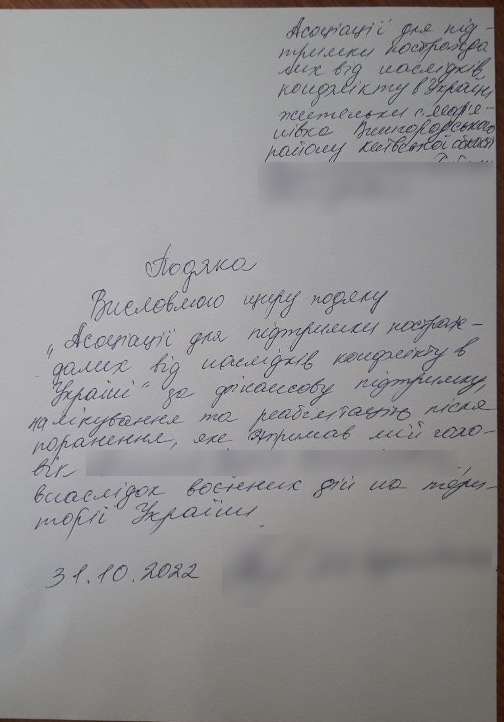 Асоціації для під-
тримки постражда
лих від наслідків
конфлікту в Україні
жительки с. Мар'я-
нівка Вишгородського
району Київської області
Подяка
Висловлюю щиру подяку
"Асоціації для підтримки постраж-
далих від наслідків конфлікту в
Україні" за фінансову підтримку,
на лікування та реабілітацію після
поранення, яке отримав мій чоло-
вік
внаслідок воєнних дій на тери-
торії України.
31.10.2022